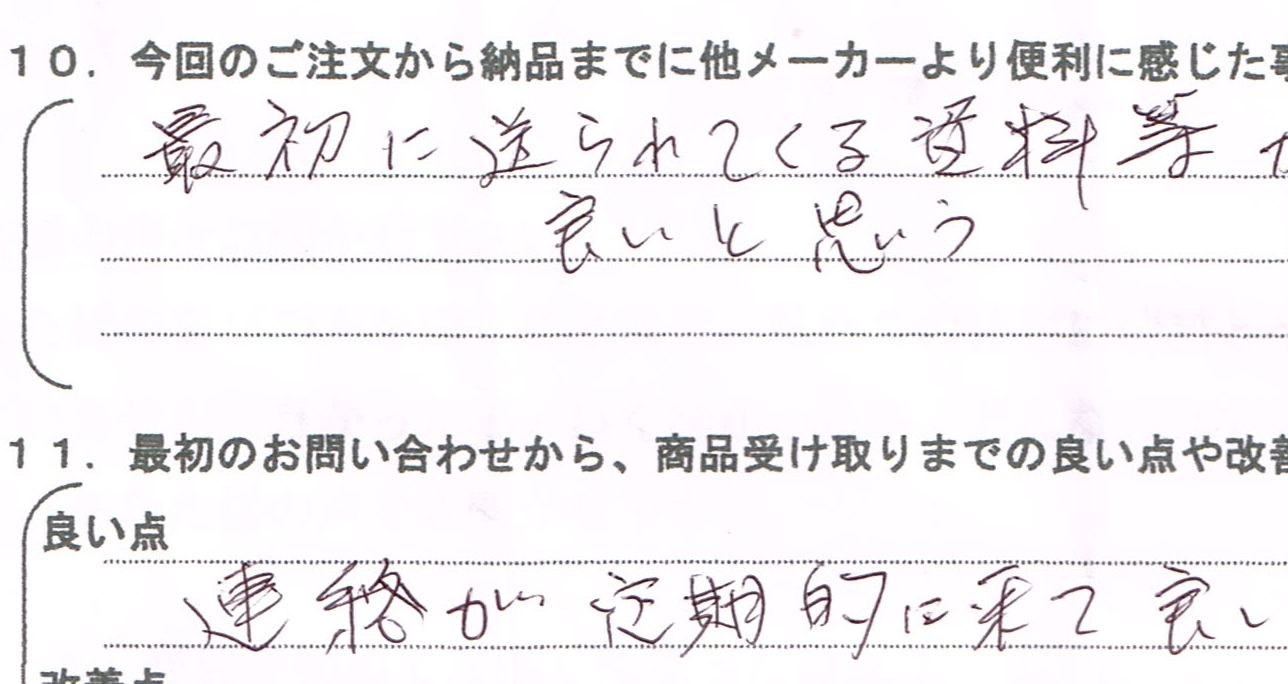 10. 今回のご注文から納品までに他メーカーより便利に感じた事
最初に送られてくる資料等が
良いと思う
11. 最初のお問い合わせから、商品受け取りまでの良い点や改善
良い点
連絡が定期的に来て良い
改善点